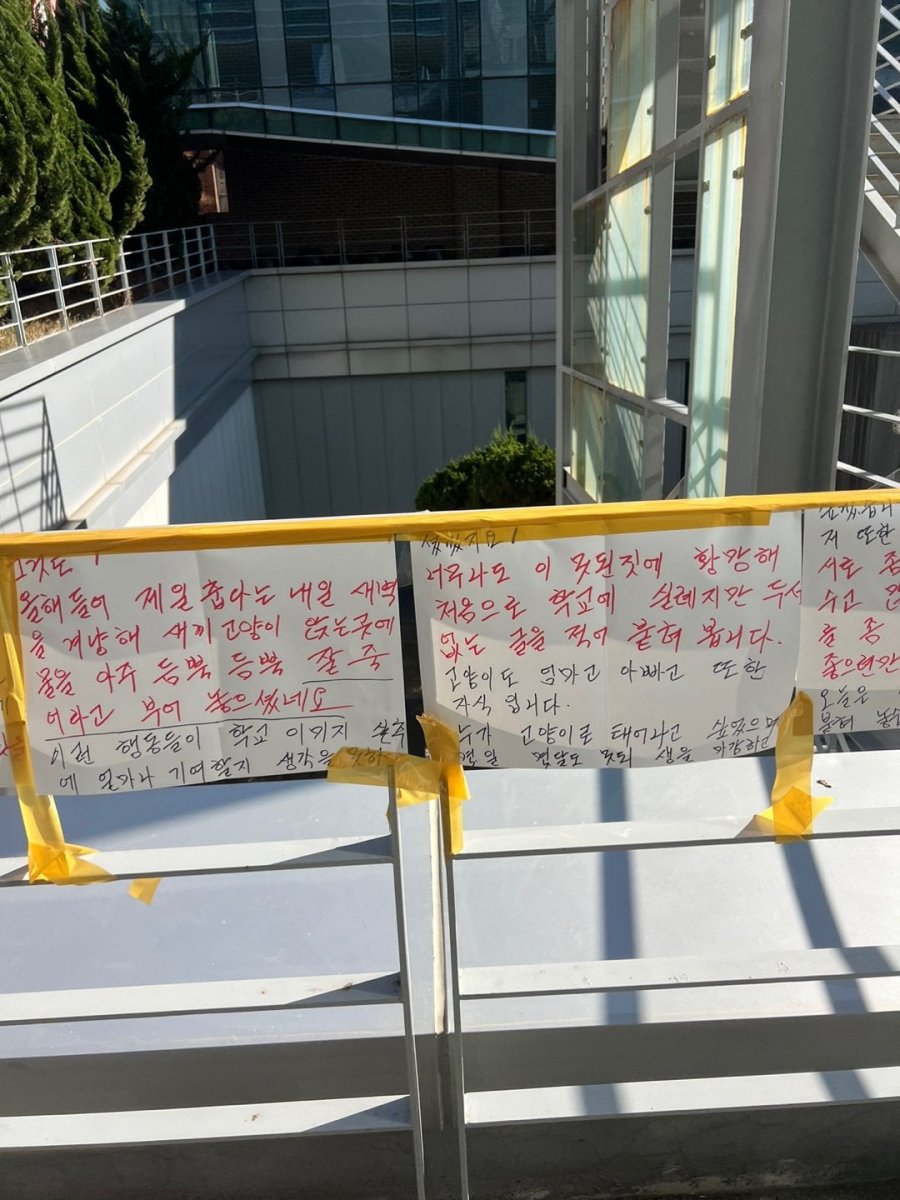 그것도 !
올해들어 제일 춥다는 내일 새벽
을 겨냥해 새끼고양이 있는곳에
물을 아주 듬뿍 듬뿍 잘 죽
어라고 부어 놓으셨네요
이런 행동들이 학교 이미지 실추
에 얼마나 기여할지 생각을 못하
셨겠지요 !
너무나도 이 못된짓에 황망해
처음으로 학교에 실례지만 두서
없는 글을 적어 붙혀 봅니다.
고양이도 엄마고 아빠고 또한
자식 입니다.
누가 고양이로 태어나고 싶었으며
몇일 몇달도 못되 생을 마감하고
저 또한
서로 좀
수고
름 좀
좋으련만
오늘은
붙혀 놓